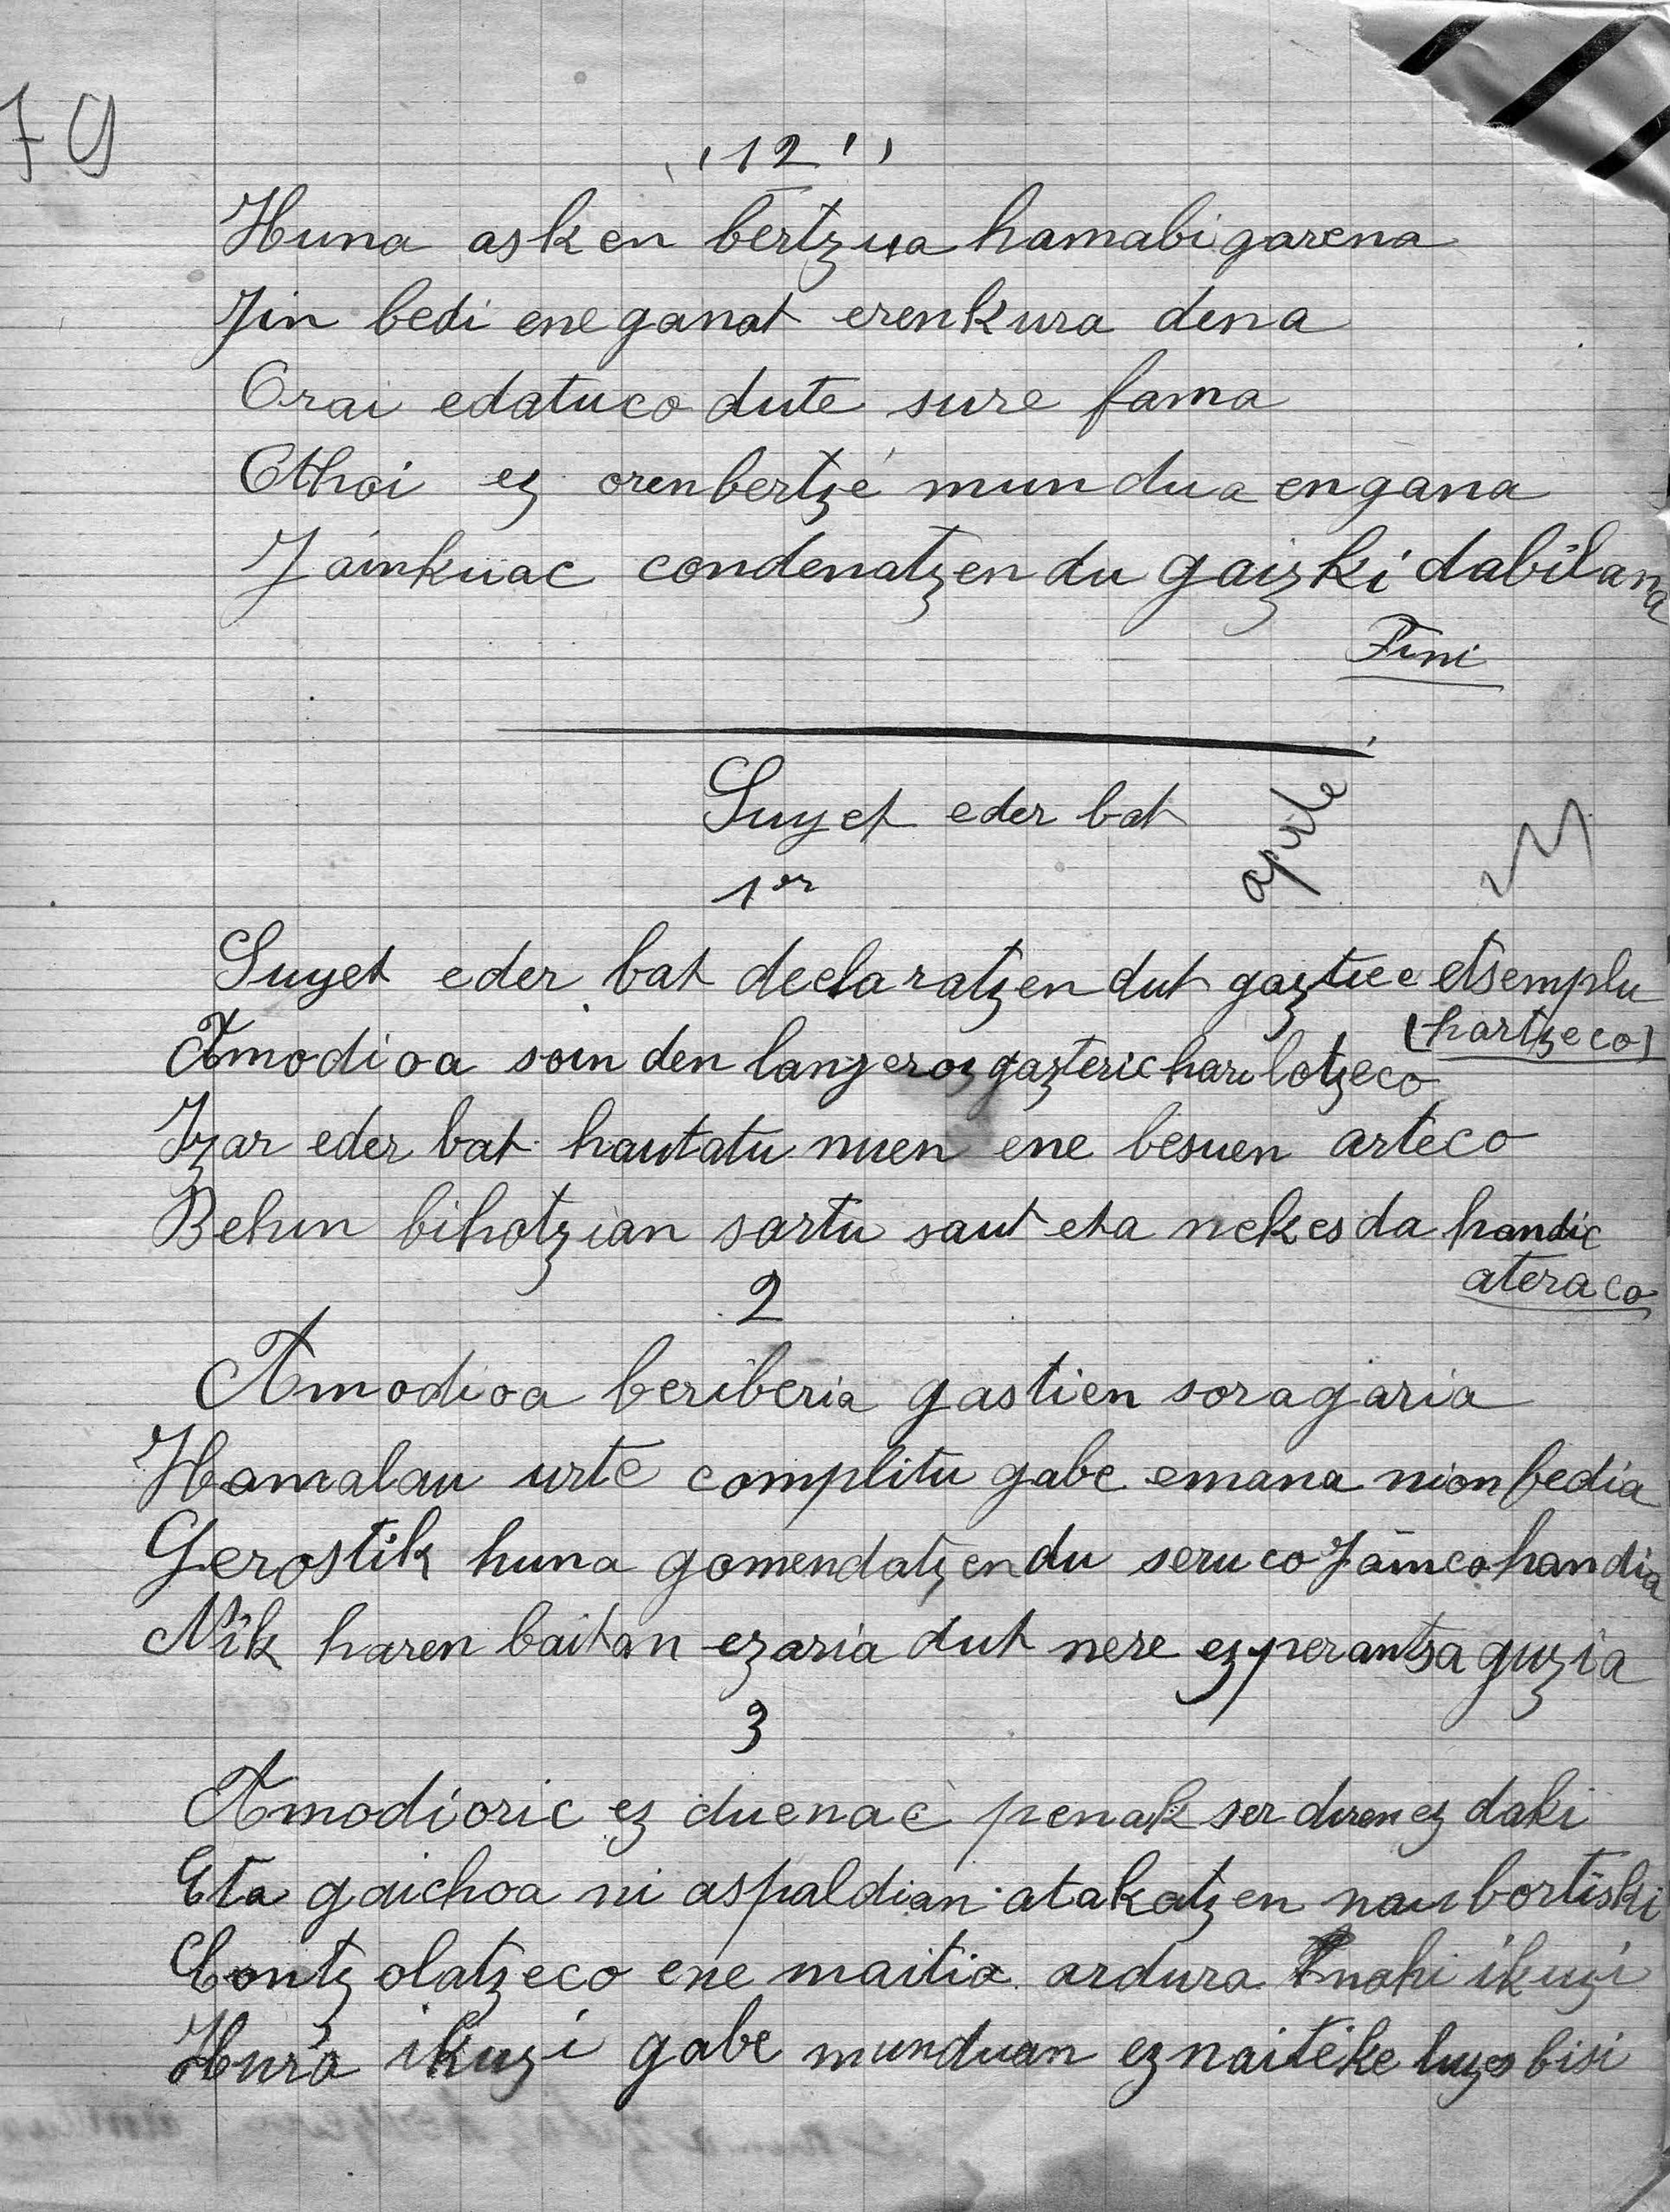 79
"12"
Huna asken bertzua hamabigarena
Jin bedi ene ganat erenkura dena
Orai edatuco dute sure fama
Othoi ez orenbertze mundua engana
Jainkuac condenatzen du gaizki dabilana
Fini
Suyet eder bat
1er
Suyet eder bat declaratzen dut gaztiee etsemplu
(hartzeco)
Amodioa soin den lanzeroz gazteric hari lotzeco
Izar eder bat hautatu nuen ene besuen arteco
Behin bihotzian sartu saut eta nekes da handic
ateraco
2
Amodioa beriberia gastien soragaria
Hamalau urte complitu gabe emana nion fedia
Gerostik huna gomendatzen du seruco Jainco handia
Nik haren baitan ezaria dut nere ezperantsa guzia
3
Amodioric ez duenac penak ser diren ez daki
Eta gaichoa ni aspaldian atakatzen nau bortiski
Contzolatzeco ene maitia ardura nahi ikuzi
Hura ikuzi gabe munduan ez naiteke luzes bisi